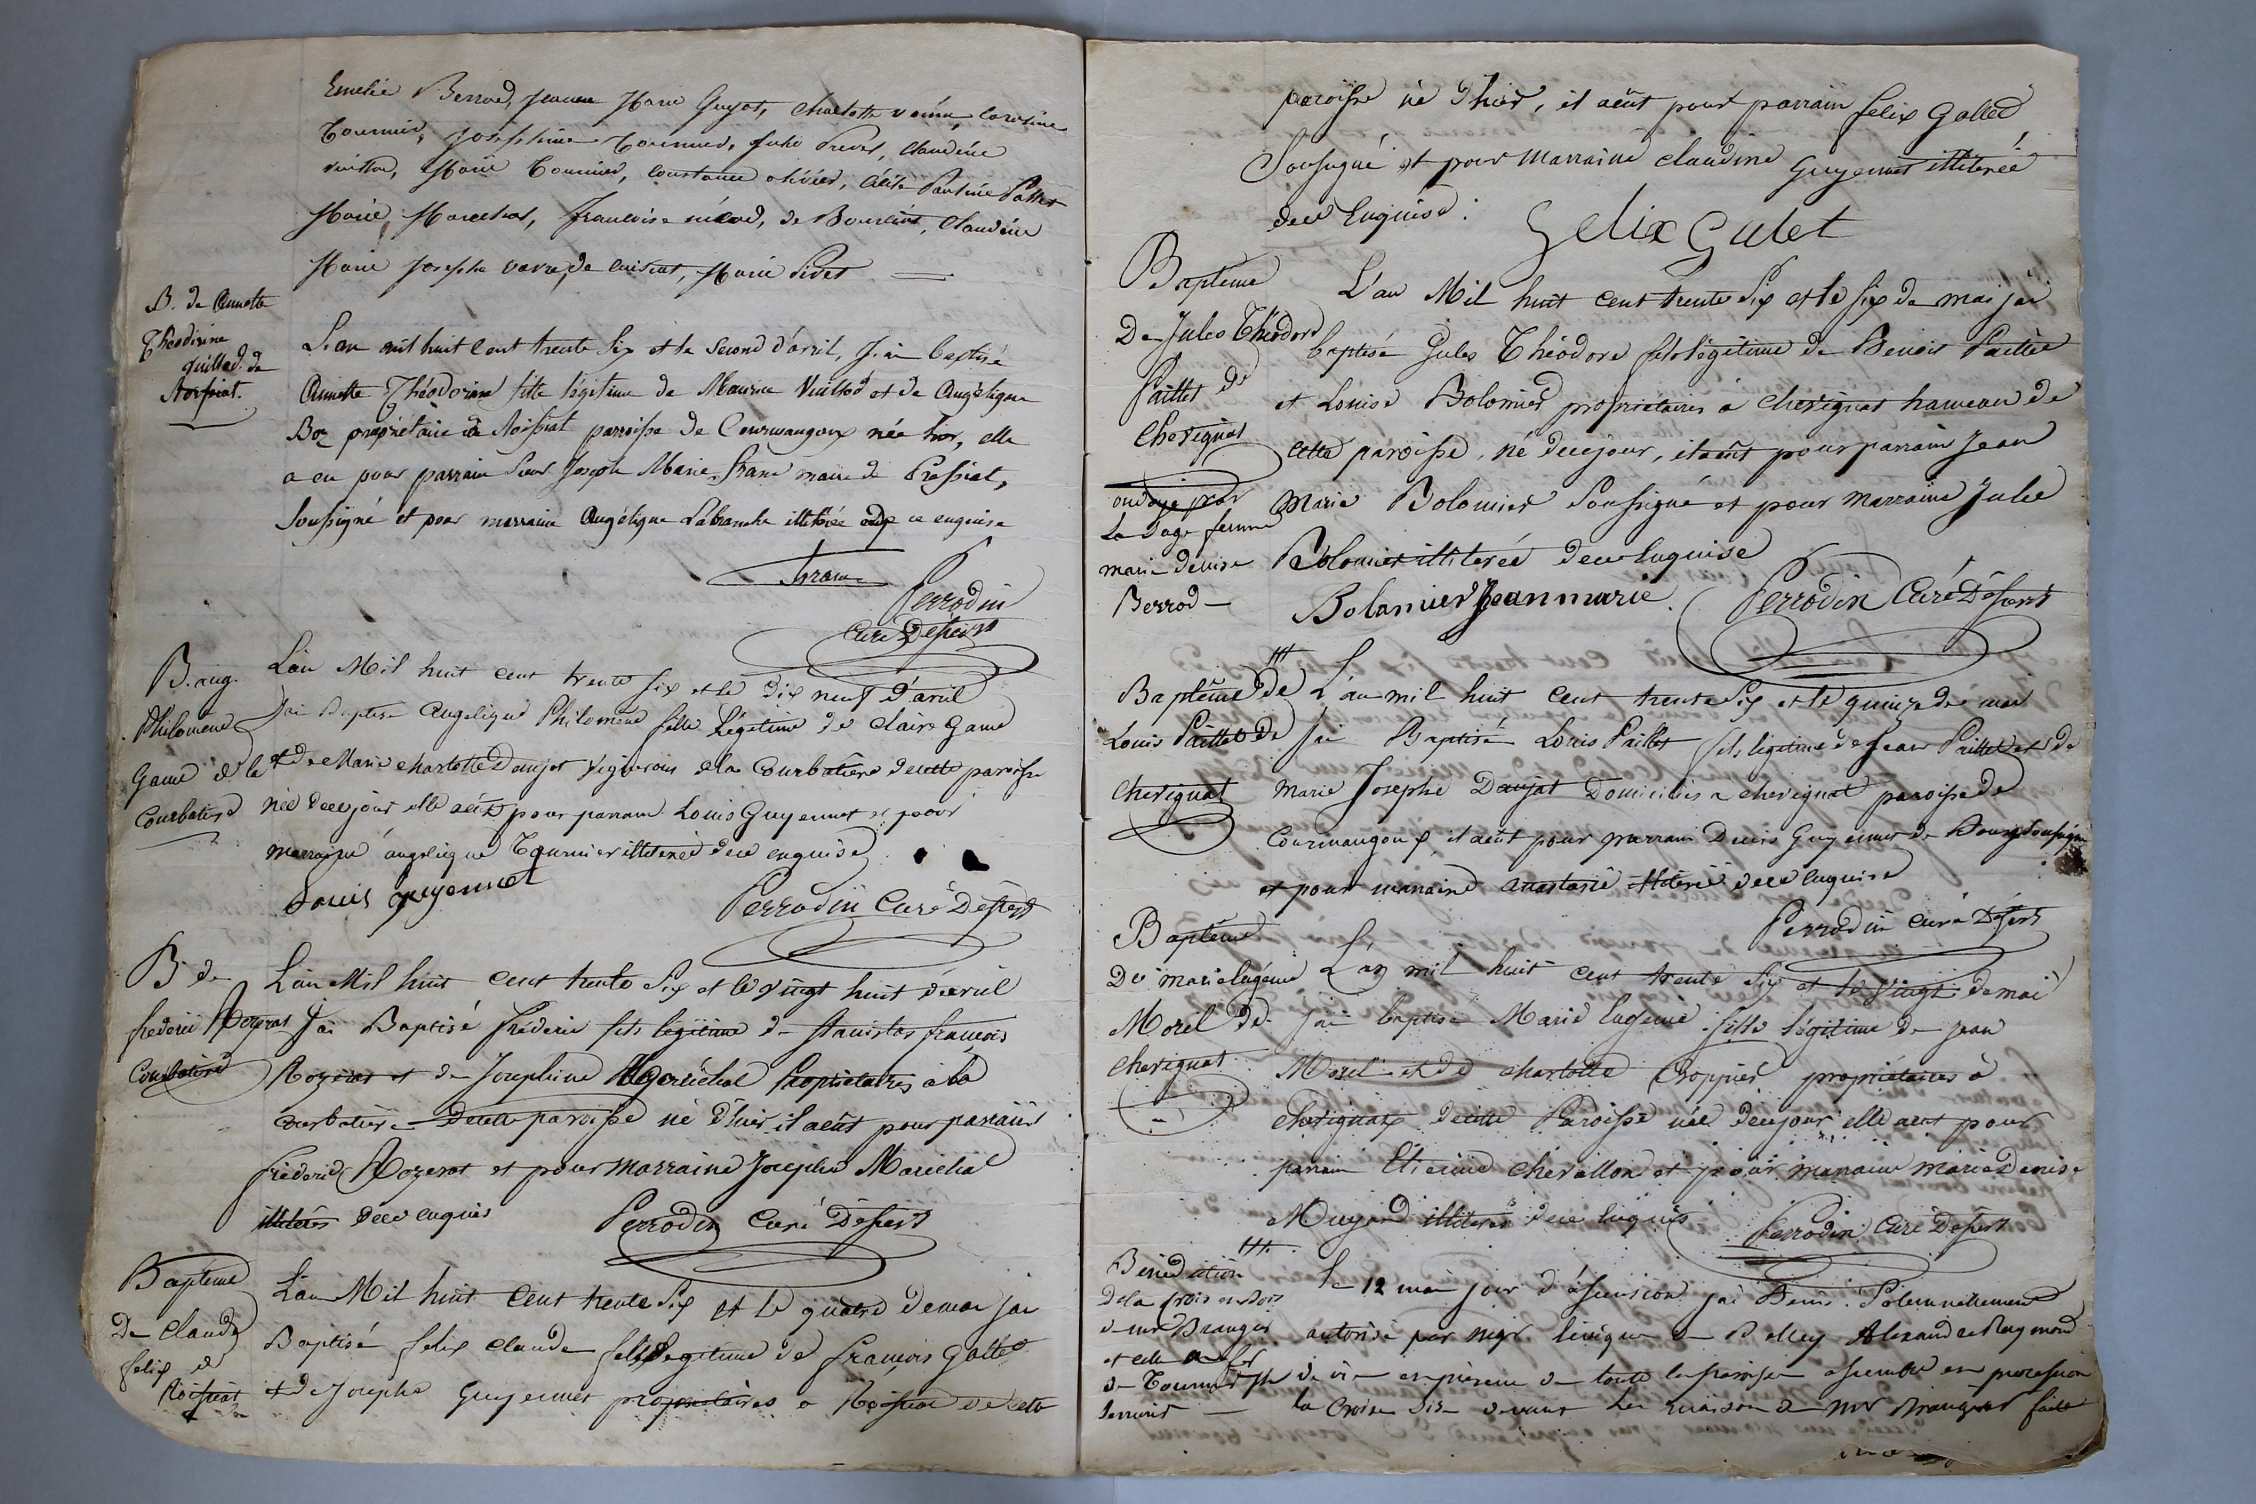 Emelie Berrod, jeanne Marie Guyot, charlotte caroline
Tournier, Josephine Tournier, Julie Claudine
Marie Tournier, constance olivier, Pauline Pallet
Marie Marechal, francoise de Claudine
Marie Josephe de cuisiat, Marie Pidet
B. de Annette
Théodorine
vuillod de
Roissiat.
L'an mil huit cent trente six et le second d'avril, J'ai baptisé
Annette Théodorine fille légitime de Maurice Vuillod et de Angélique
Boz propriétaire à Roissiat parroisse de Courmangoux née hier, elle
a eu pour parrain sieur Joseph Marie franc maire de Pressiat,
soussigné et pour marraine Angélique Labranche illiterée de ce enquise
franc
Perrodin
Curé Dessert
B. ang.
Philomene
Game de la
Courbatiere
L'an Mil huit cent trente six et le dix neuf d'avril
J'ai Baptisé Angelique Philomene fille Légitime de Claire Game
et de Marie charlotte Danjat vignerons de la Courbatiere decette paroisse
née decejour elle aeut pour parrain Louis Guyennet et pour
marraine angelique Tournier illiterée dece enquise
Louis guyennet
Perrodin Curé Dessert
B. de
frederic Rozerat
Courbatiere
L'an Mil huit cent trente six et le vingt huit d'avril
J'ai Baptisé frédéric fils légitime de Stanislas françois
Rozerat et de Josephine Maréchal Propriétaires à la
Courbatiere Decette paroisse né d'hier il aeut pour parrain
frédéric Rozerat et pour marraine Josephe Maréchal
illiterés dece enquis
Perrodin Curé Dessert
Bapteme
De Claude
felix de
Roissiat
L'an Mil huit Cent trente six et le quatre demai jai
Baptisé felix Claude fils Legitime de françois Gallet
et de Josephe Guyennet propriétaires a Roissiat de cette
paroisse né d'hier, il aeût pour parrain felix Gallet
Soussigné et pour Marraine Claudine Guyennet illiterée
dece Enquise.
Felix Galet
Bapteme
De Jules Théodore
Paillet de
Chevignat
ondoyé par
La Sage femme
marie denise
Berrod
L'an Mil huit cent trente six et le six de mai jai
baptisé Jules Théodore fils légitime de Benoit Paillet
et Louise Bolomier propriétaires à chevignat hameau de
cette paroisse, né decejour, ilaeût pour parrain Jean
Marie Bolomier Soussigné et pour Marraine Julie
Bolomier illiterée dece Enquise
Bolamier Jean marie
Perrodin Curé Dessert
Baptême de
Louis Paillet de
Chevignat
L'an mil huit cent trente six et le quinze de mai
jai Baptisé Louis Paillet fils légitime de Jean Paillet et de
Marie Josephe Danjat Domiciliés a chevignat paroisse de
Courmangoux, il aeut pour parrain Denis Guyennet de Bourg Soussigné
et pour marraine anastasie illiterée dece enquise
Perrodin curé Dessert
Baptême
De marie Eugénie
Morel de
chevignat
L'an mil huit cent trente six et le vingt demai
jai baptisé Marie Eugenie fille légitime de jean
Morel et de charlotte Croppier propriétaires à
chevignat decette Paroisse née decejour elle aeut pour
parrain Etienne chevallon et pour marraine marie Denise
Mugard illiterés dece Enquis
Perrodin Curé Dessert
Bénédiction
De la croix en bois
de mr Branger
et celle en fer
de Tournier
serrurier
le 12 mai jour d'ascension jai Beni Solemnellement
autorisé par mgr. l'évêque de Belley Alexandre Raymond
de vie en présence de toute la paroisse assemblée en procession
la Croix sise devant la maison de mr Branger faite